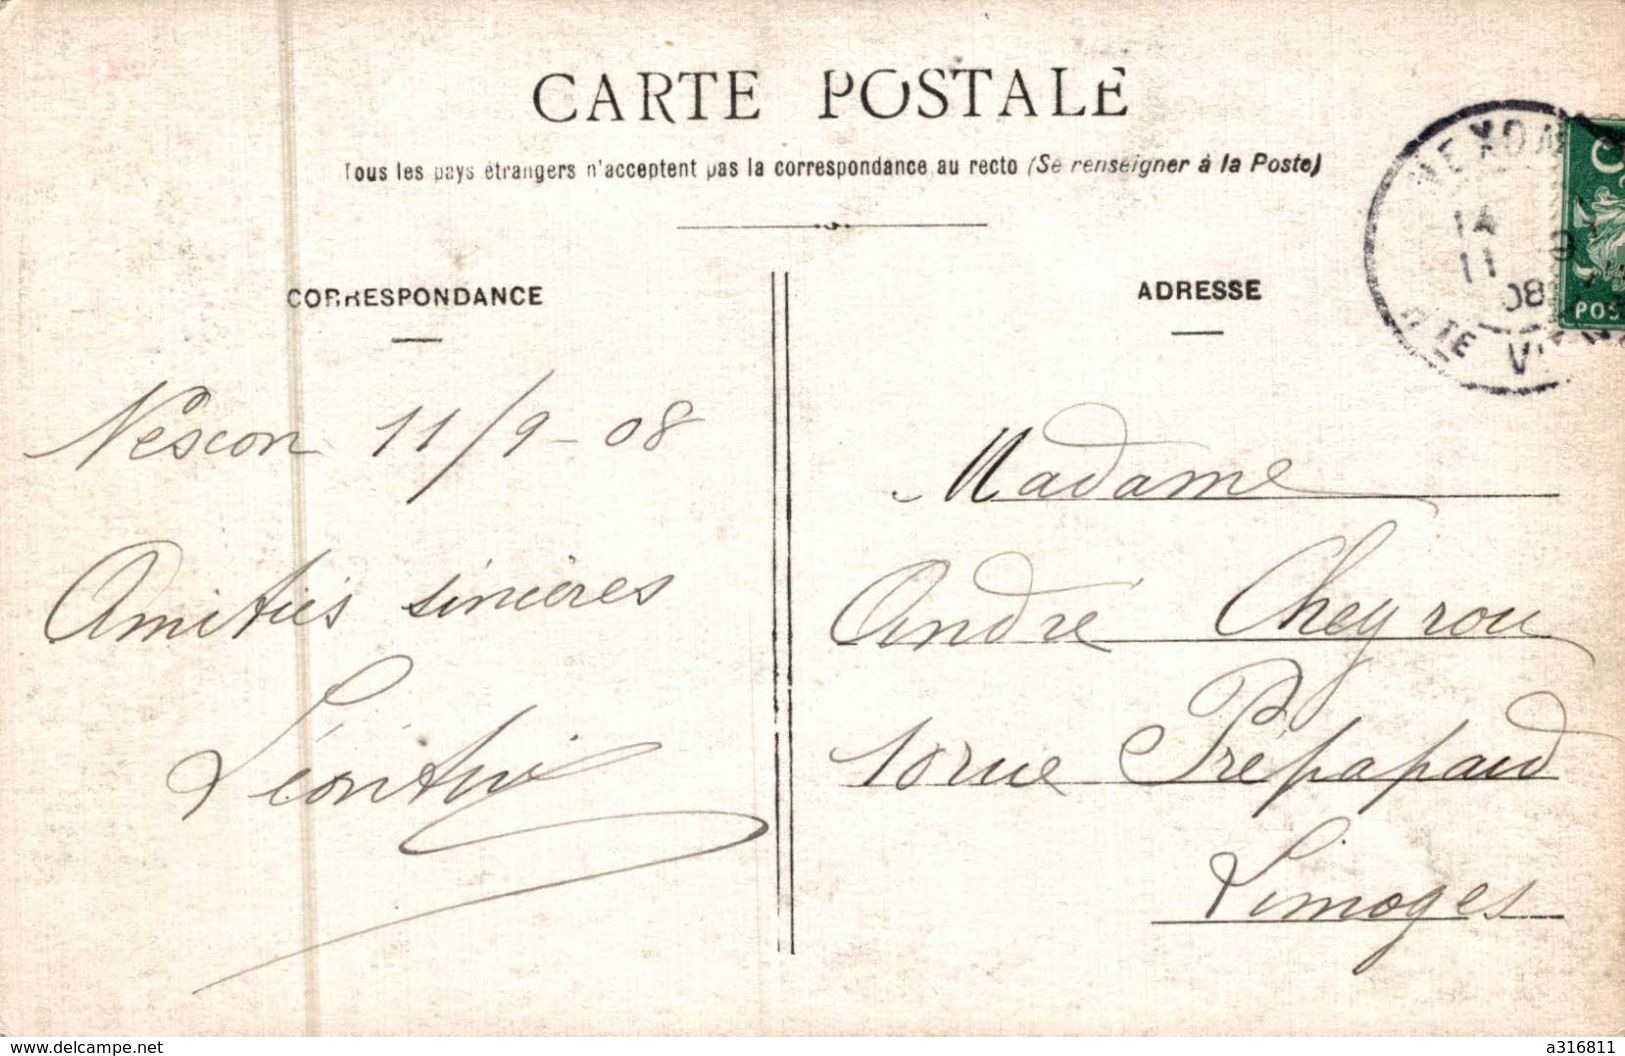 CARTE POSTALE
Tous les pays étrangers n'acceptent pas la correspondance au recto (Se renseigner à la Poste)
CORRESPONDANCE
ADRESSE
NEXON
14
11 9
08
HTE VIENNE
POS
Nexon 11/9-08
Amitiés sincères
Léontine
Madame
André Cheyrou
10 rue Prépapaud
Limoges
www.delcampe.net
a316811